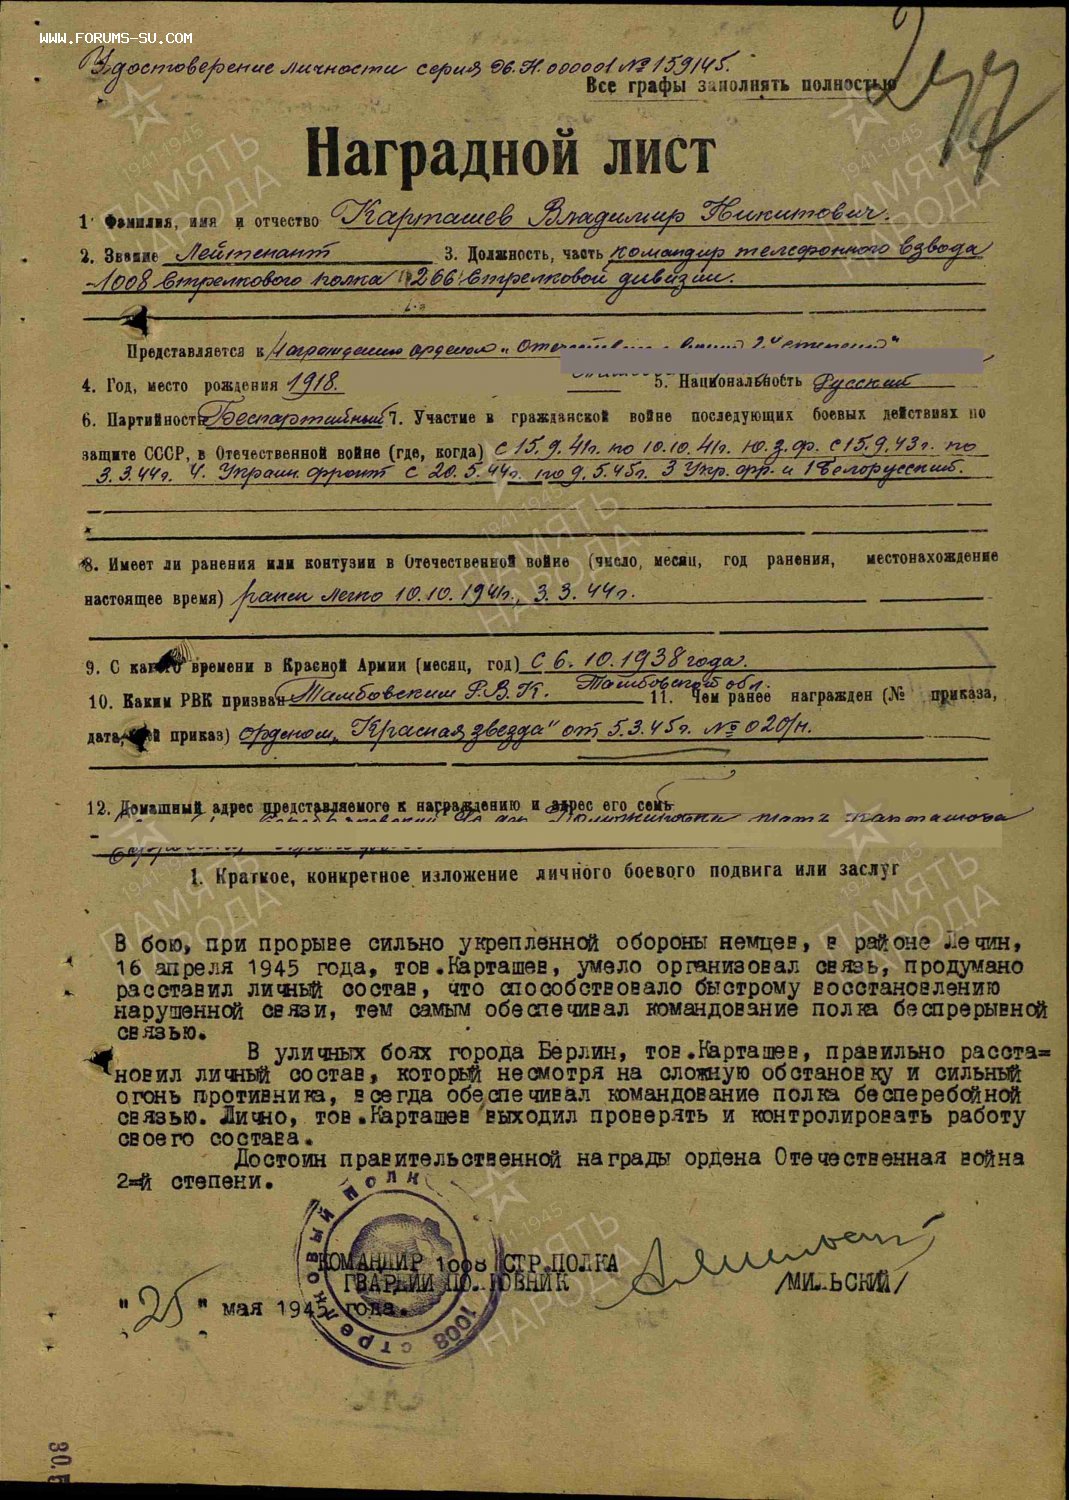 WWW.FORUMS-SU.COM
Удостоверение личности серия Об.Н.000001 № 159145.
Все графы заполнять полностью
Наградной лист
1 Фамилия, имя и отчество Карташев Владимир Никитович.
2. Звание Лейтенант 3. Должность, часть командир телефонного взвода
1008 Стрелкового полка 266 Стрелковой дивизии.
Представляется к Награждению орденом „Отечественная война 2й степени"
4. Год, место рождения 1918. 5. Национальность Русский
6. Партийность Беспартийный 7. Участие в гражданской войне последующих боевых действиях по
защите СССР, в Отечественной войне (где, когда) с 15.9.41г. по 10.10.41г. Ю.З.ф. с 15.9.43г. по
3.3.44г. 4. Украин. фронт с 20.5.44г. по 9.5.45г. 3 Укр. фр. и 1 Белорусский.
8. Имеет ли ранения или контузии в Отечественной войне (число, месяц, год ранения, местонахождение
настоящее время) ранен легко 10.10.1941г., 3.3.44г.
9. С какого времени в Красной Армии (месяц, год) с 6.10.1938 года.
10. Каким РВК призван Тамбовским Р.В.К. Тамбовской обл. 11. Чем ранее награжден (№ приказа,
дата, чей приказ) орденом „Красная звезда" от 5.3.45г. № 020/н.
12. Домашный адрес представляемого к награждению и адрес его семь
мать Карташова
1. Краткое, конкретное изложение личного боевого подвига или заслуг
В бою, при прорыве сильно укрепленной обороны немцев, в районе Лечин,
16 апреля 1945 года, тов.Карташев, умело организовал связь, продумано
расставил личный состав, что способствовало быстрому восстановлению
нарушенной связи, тем самым обеспечивал командование полка беспрерывной
связью.
В уличных боях города Берлин, тов.Карташев, правильно расста=
новил личный состав, который несмотря на сложную обстановку и сильный
огонь противника, всегда обеспечивал командование полка бесперебойной
связью. Лично, тов.Карташев выходил проверять и контролировать работу
своего состава.
Достоин правительственной награды ордена Отечественная война
2=й степени.
КОМАНДИР 1008 СТР.ПОЛКА
ГВАРДИИ ПОЛКОВНИК /МИЛЬСКИЙ/
"25" мая 1945 года.
1008 стрелковый полк
30.5
1941-1945
ПАМЯТЬ
НАРОДА